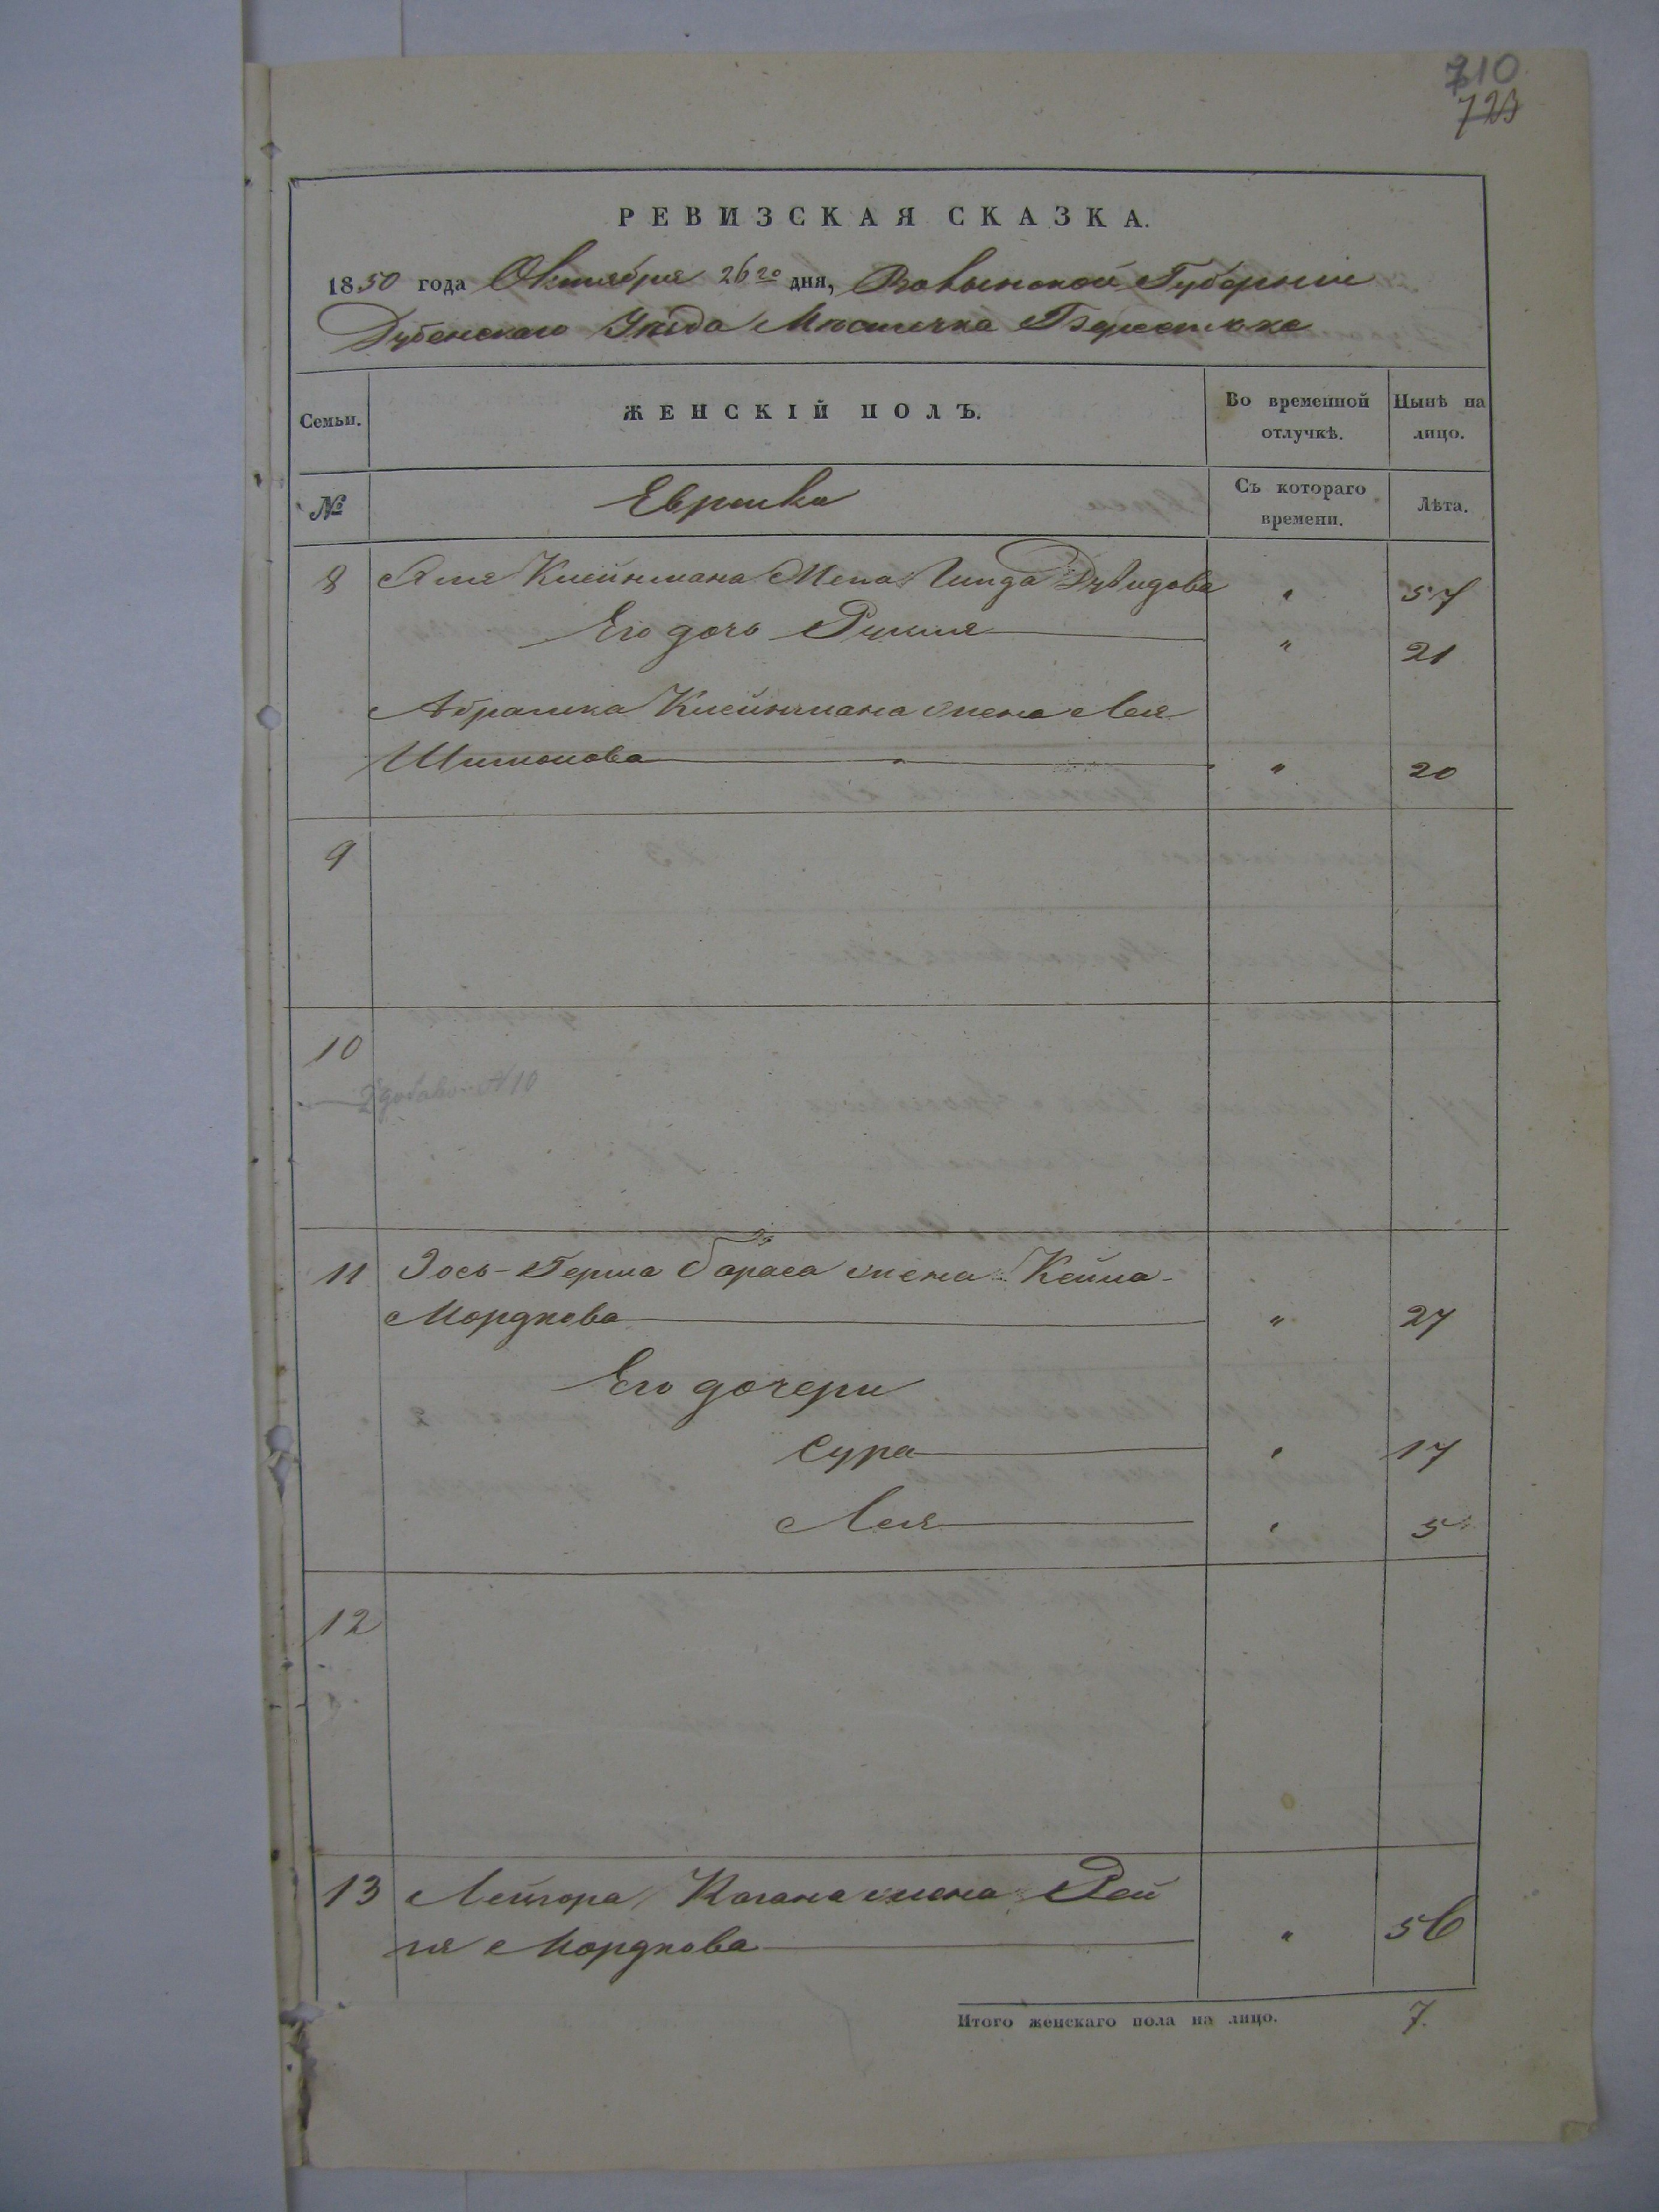 710
723
РЕВИЗСКАЯ СКАЗКА.
1850 года Октября 26го дня, Волынской Губернии
Дубенскаго Уезда Местечка Берестечка
Семьи. ЖЕНСКІЙ ПОЛЪ. Во временной отлучкѣ. Нынѣ на лицо.
№ Еврейки Съ котораго времени. Лѣта.
8 Клейнмана Жена Гинда Дувидова " 57
Его дочь " 21
Абрамка Клейнмана жена Лея
Шимонова " 20
9
10
2 добавоч. № 10
11 Іось-Герша Бараса жена Кейла
Мордкова " 27
Его дочери
Сура " 17
Лея " 5
12
13 Лейзора Кагана жена Рей
зя Мордкова " 56
Итого женскаго пола на лицо. 7.